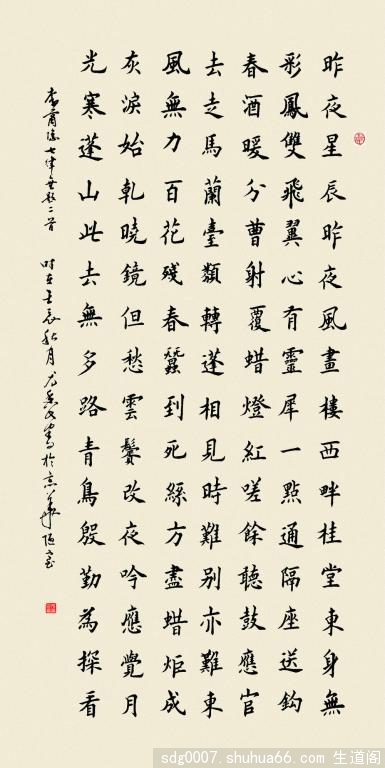 昨夜星辰昨夜風畫樓西畔桂堂東身無
彩鳳雙飛翼心有靈犀一點通隔座送鈎
春酒暖分曹射覆蜡燈紅嗟餘聽鼓應官
去走馬蘭臺類轉蓬相見時難别亦難東
風無力百花殘春蠶到死絲方盡蜡炬成
灰淚始乾曉鏡但愁雲鬢改夜吟應覺月
光寒蓬山此去無多路青鳥殷勤為探看
李商隱七律無題二首 時在壬辰秋月 書於京華陋室
sdg0007.shuhua66.com 生道阁